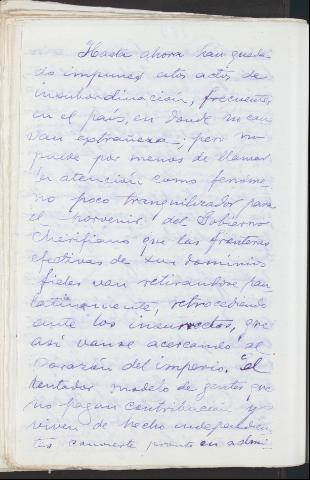 Hasta ahora han queda-
do impunes estos actos de
insubordinación, frecuentes
en el pais, en donde no cau-
san extrañeza; pero no
puede por menos de llamar
la atención como fenóme-
no poco tranquilizador para
el porvenir del Gobierno
Cherifiano que las fronteras
efectivas de sus dominios
fieles van retirandose pau-
latinamente, retrocediendo
ante los insurrectos, que
asi vanse acercando al
corazón del imperio. El
tentador modelo de gentes que
no pagan contribucion y
viven de hecho independien-
tes convierte pronto en admi-